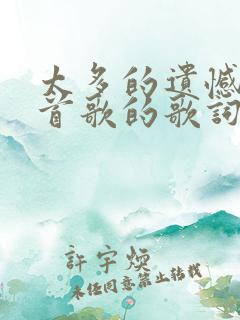 太多的遗憾
首歌的歌词
許宇煥
未经同意禁止转载